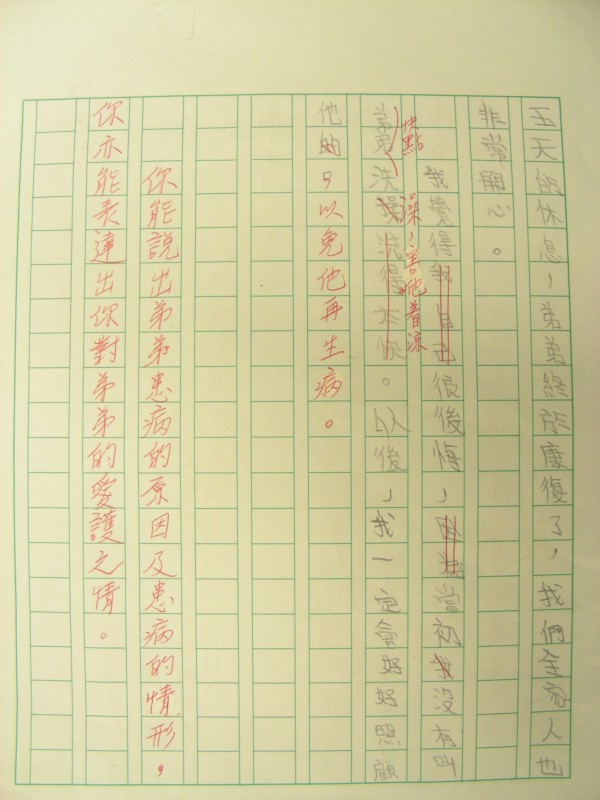 五天的休息，弟弟終於康復了，我們全家人也
非常開心。
我覺得我自己很後悔，因為當初我沒有叫
快點
澡，害他着涼
弟弟洗操洗得快。以後，我一定會好好照顧
他的，以免他再生病。
你能說出弟弟患病的原因及患病的情形，
你亦能表達出你對弟弟的愛護之情。